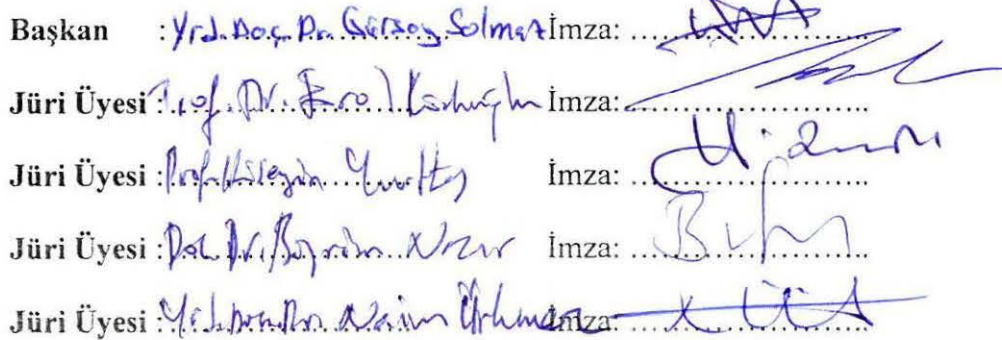 Başkan : Yrd. Doç. Dr. Gürsoy Solmaz İmza: ....................
Jüri Üyesi : Prof. Dr. Erol İmza: ....................
Jüri Üyesi : Prof. Hüseyin Yurttaş İmza: ....................
Jüri Üyesi : Doç. Dr. Bayram Nazır İmza: ....................
Jüri Üyesi : Yrd. Doç. Dr. Naim Ürkmez İmza: ....................